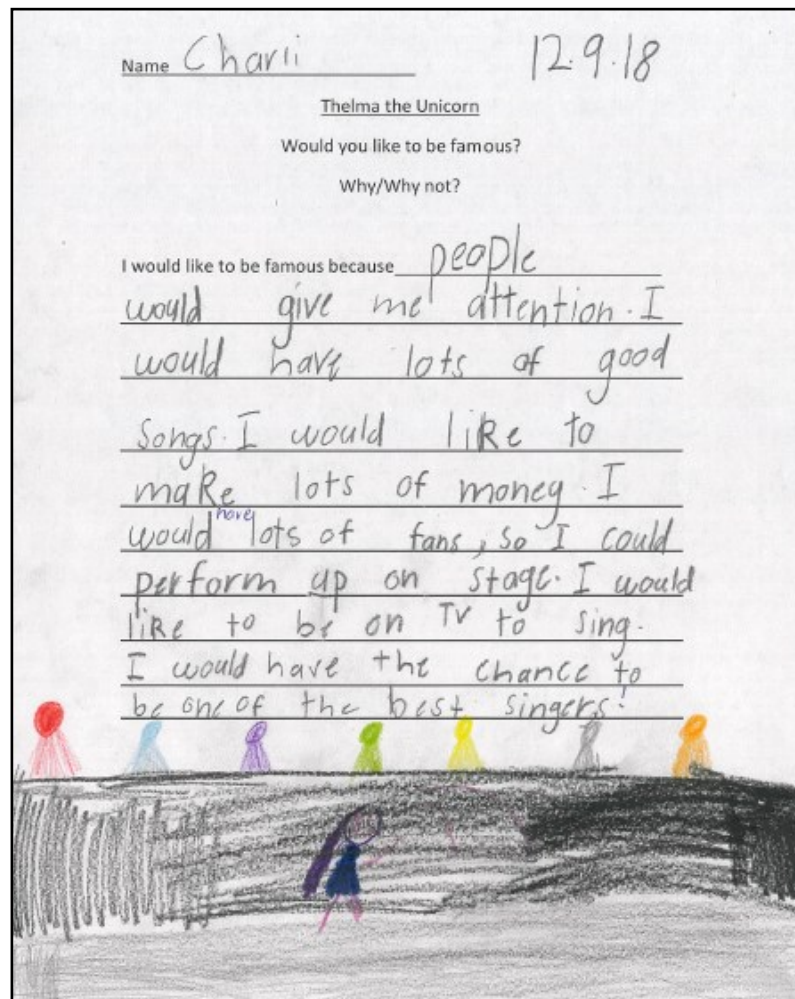 Name Charli 12.9.18
Thelma the Unicorn
Would you like to be famous?
Why/Why not?
I would like to be famous because people
would give me attention. I
would have lots of good
songs. I would like to
make lots of money. I
would have lots of fans, so I could
perform up on stage. I would
like to be on TV to sing.
I would have the chance to
be one of the best singers!